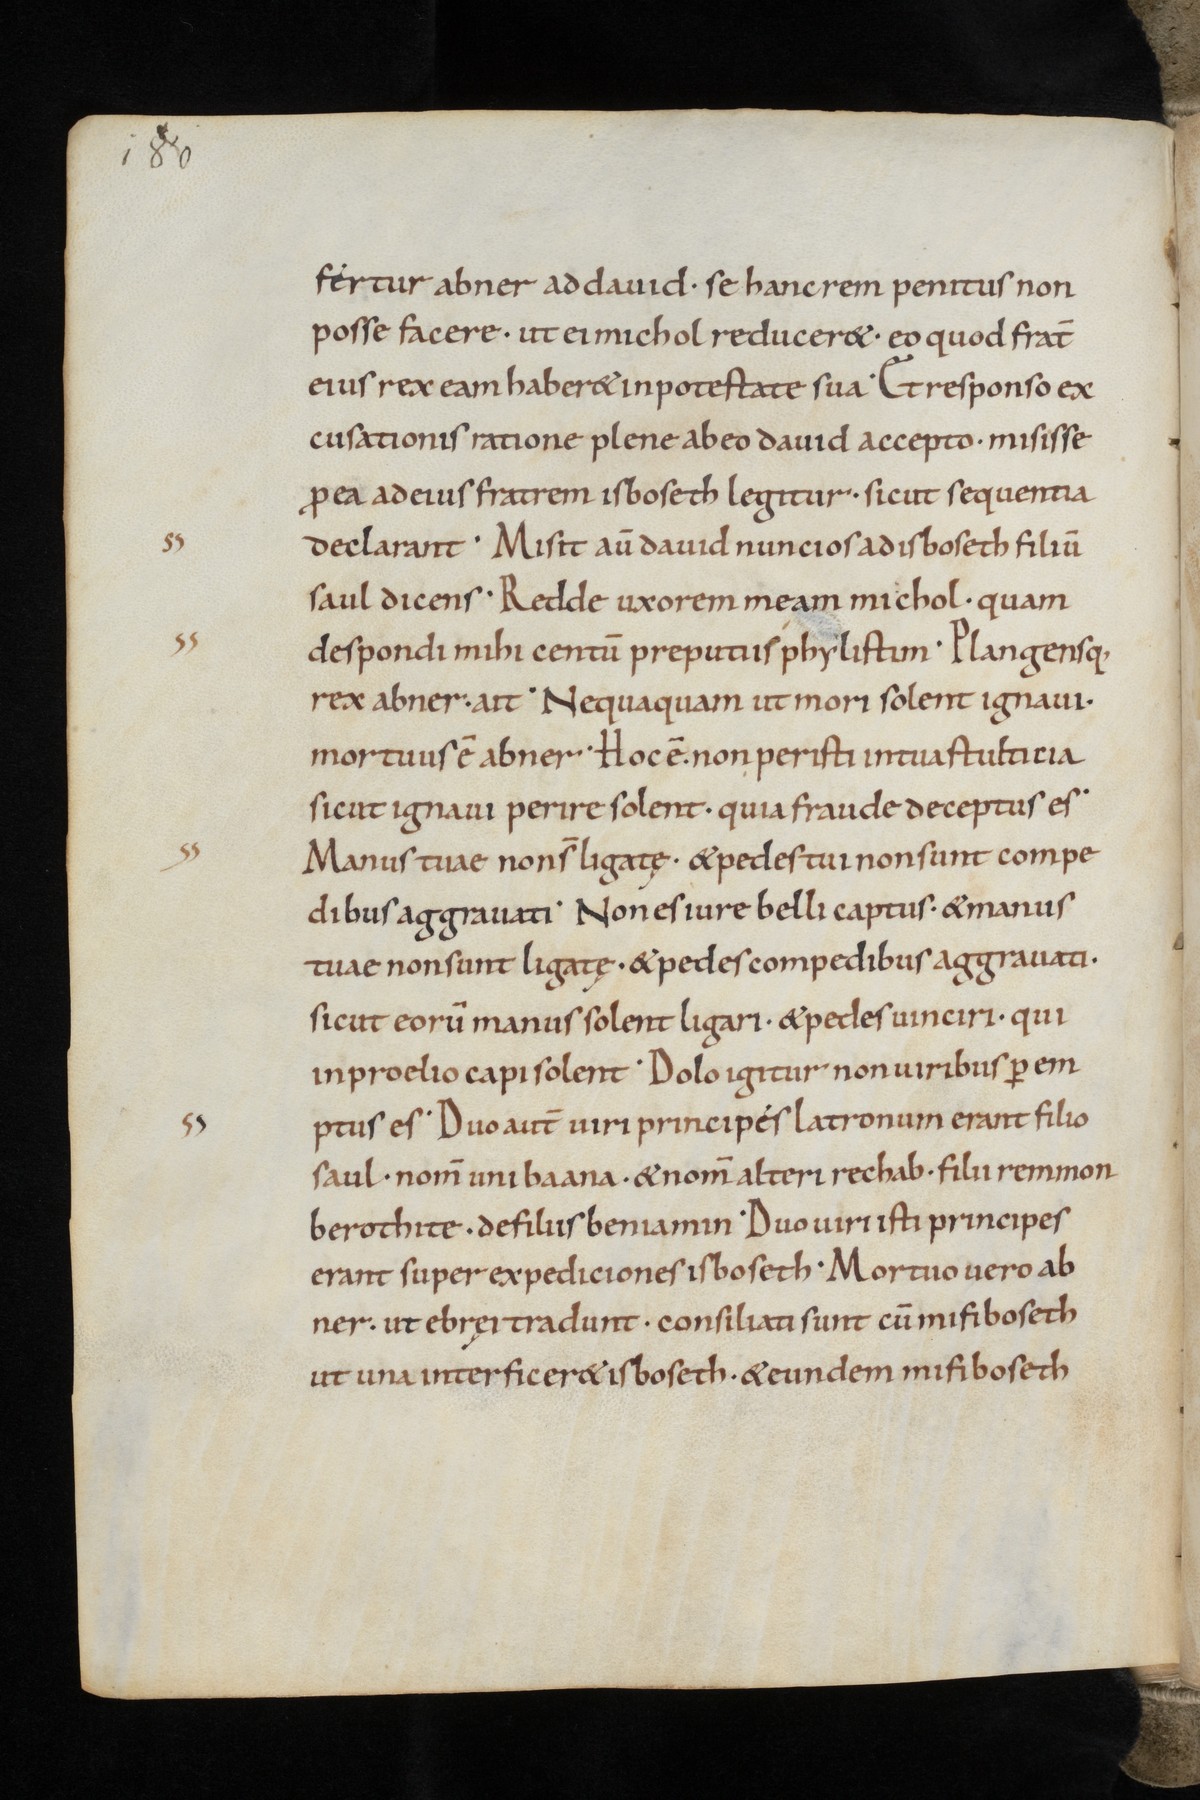 180
fertur abner ad dauid · se hanc rem penitus non
posse facere · ut ei michol reducer& · eo quod frat̄
eius rex eam haber& in potestate sua · Et responso ex
cusationis ratione plene ab eo dauid accepto · misisse
ꝓ ea ad eius fratrem isboseth legitur · sicut sequentia
declarant · Misit aū dauid nuncios ad isboseth filiū
saul dicens · Redde uxorem meam michol · quam
despondi mihi centū preputiis phylistim · Plangensq;
rex abner · ait · Nequaquam ut mori solent ignaui ·
mortuus ē abner · Hoc ē · non peristi in tua stulticia
sicut ignaui perire solent · quia fraude deceptus es ·
Manus tuae non s̄ ligatę · & pedes tui non sunt compe
dibus aggrauati · Non es iure belli captus · & manus
tuae non sunt ligatę · & pedes compedibus aggrauati ·
sicut eorū manus solent ligari · & pedes uinciri · qui
in proelio capi solent · Dolo igitur non uiribus ꝑem
ptus es · Duo aut̄ uiri principes latronum erant filio
saul · nom̄ uni baana · & nom̄ alteri rechab · filii remmon
berothite · de filiis beniamin · Duo uiri isti principes
erant super expediciones isboseth · Mortuo uero ab
ner · ut ebręi tradunt · consiliati sunt cū mifiboseth
ut una interficer& isboseth · & eundem mifiboseth